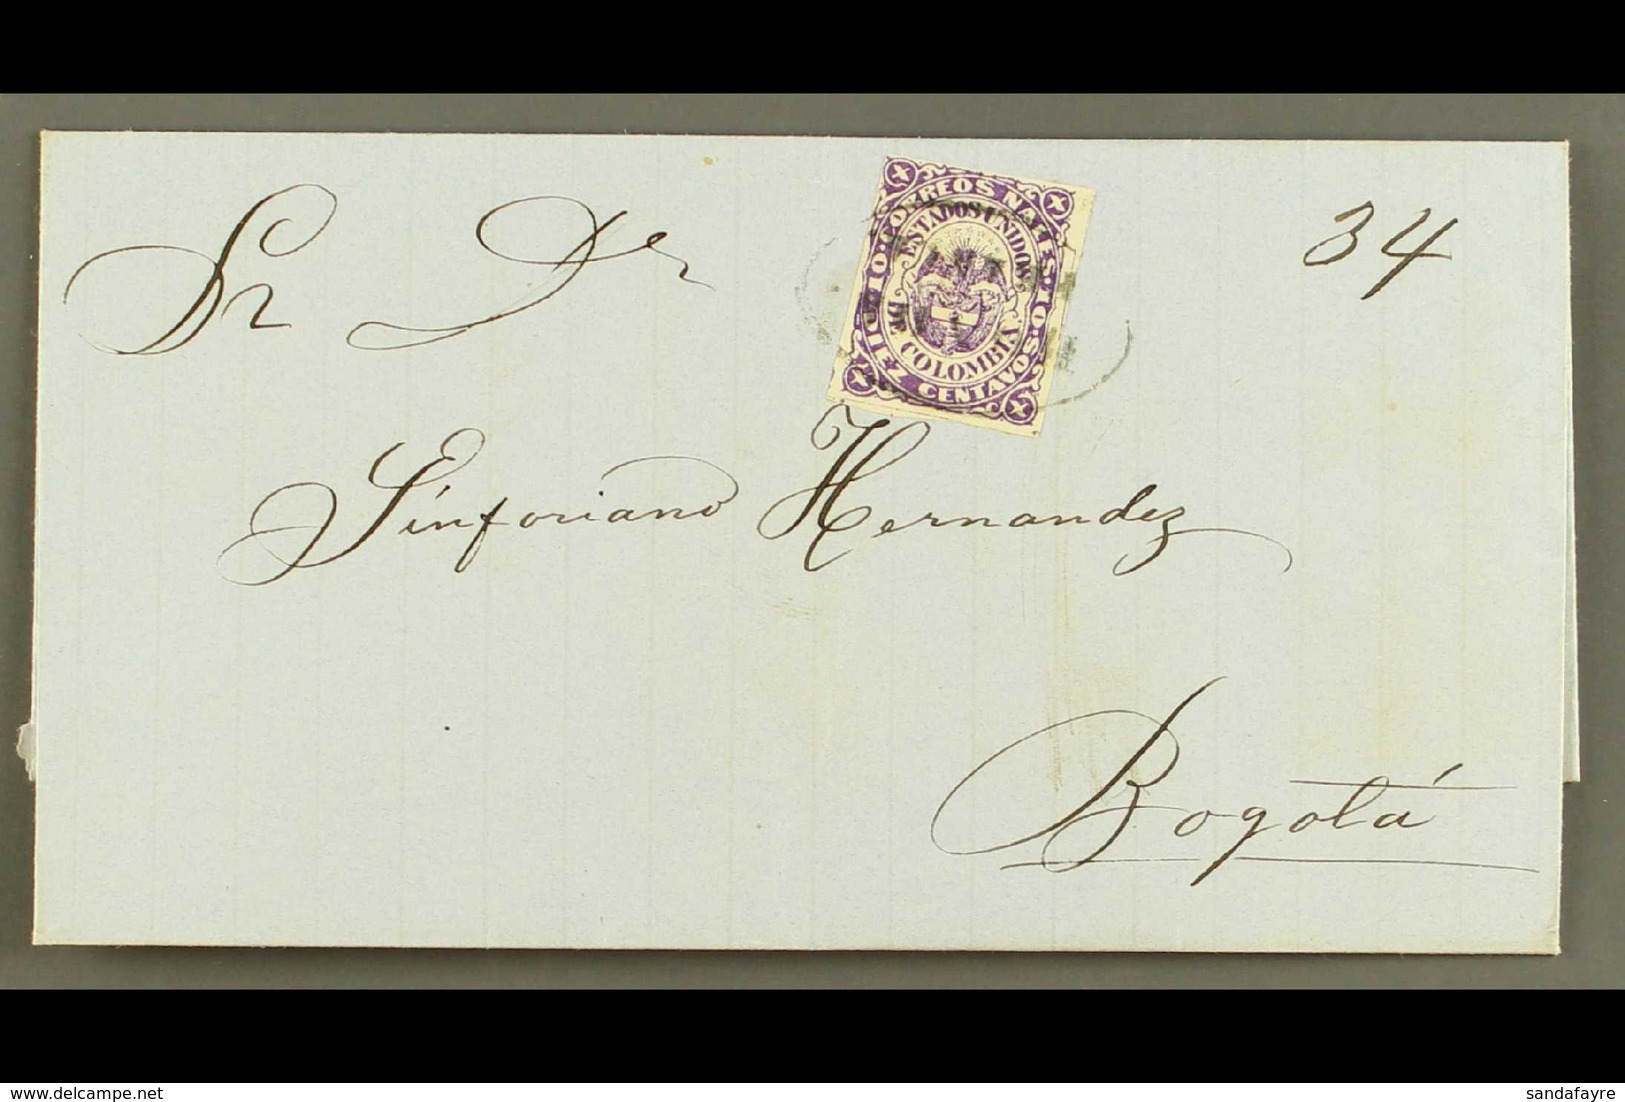 Sr Dr
34
CORREOS NALES
10 · DIEZ CENTAVOS · 10
ESTADOS UNIDOS
DE COLOMBIA
Sinforiano Hernandez
Bogotá
delcampe.net
sandafayre